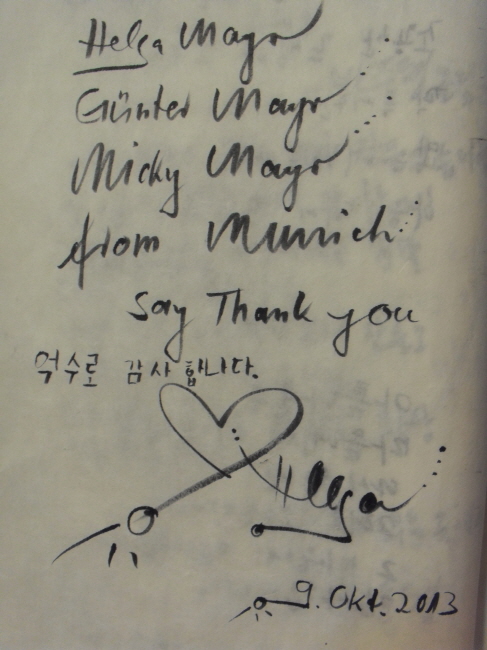 Helga Mayr
Günter Mayr
Micky Mayr
from Munich
Say Thank you
억수로 감사합니다.
Helga
9. Okt. 2013